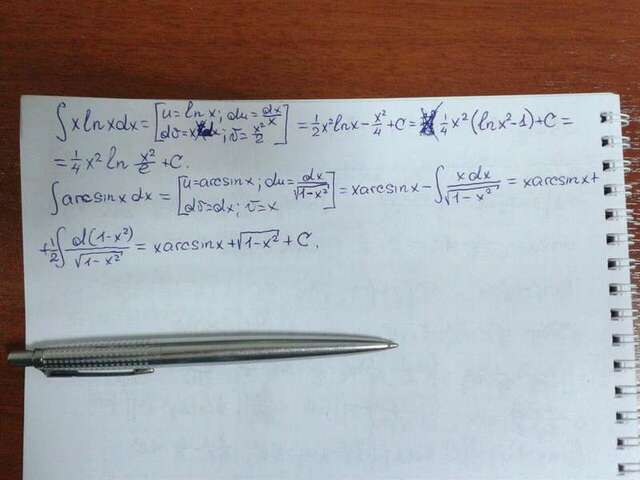 ∫ x ln x dx = [u = ln x; du = dx/x; dv = x dx; v = x²/2] = 1/2 x² ln x − x²/4 + C = 1/4 x² (ln x² − 1) + C =
= 1/4 x² ln x²/e + C.
∫ arcsin x dx = [u = arcsin x; du = dx/√(1−x²); dv = dx; v = x] = x arcsin x − ∫ x dx/√(1−x²) = x arcsin x +
+ 1/2 ∫ d(1−x²)/√(1−x²) = x arcsin x + √(1−x²) + C.